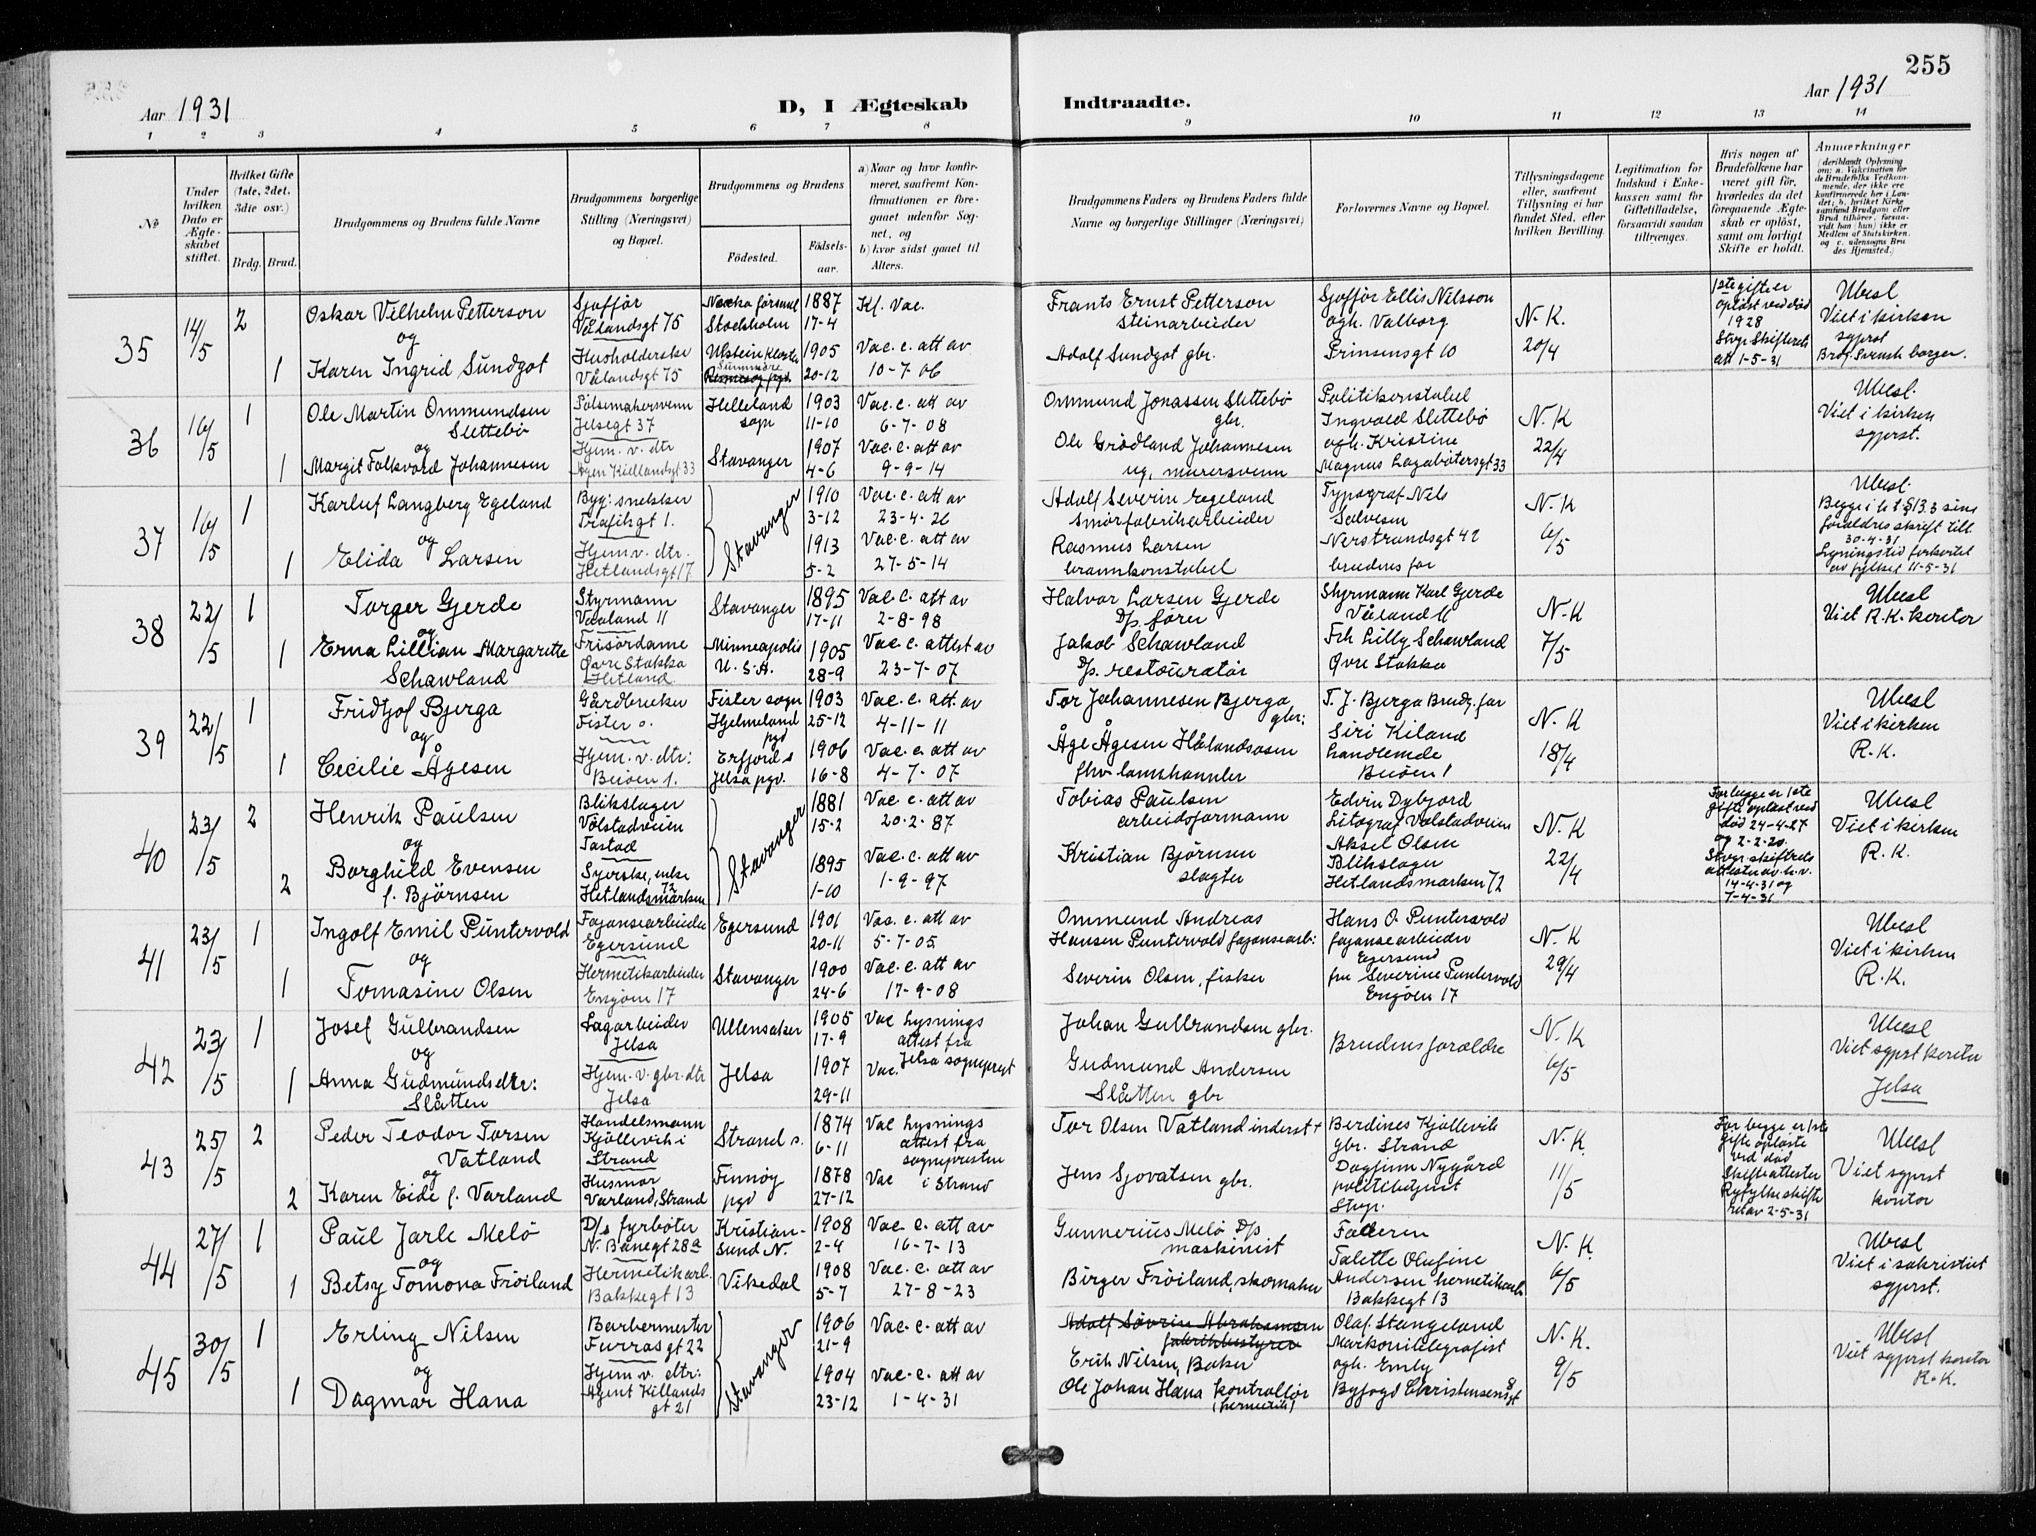 255
Aar 1931
D, I Ægteskab Indtraadte.
Aar 1931
1 2 3 4 5 6 7 8 9 10 11 12 13 14
No
Under hvilken Dato er Ægteskabet stiftet.
Hvilket Gifte (1ste, 2det, 3die osv.)
Brdg. Brud.
Brudgommens og Brudens fulde Navne
Brudgommens borgerlige Stilling (Næringsvei) og Bopæl.
Brudgommens og Brudens
Födested.
Födselsaar.
a) Naar og hvor konfirmeret, saafremt Konfirmationen er foregaaet udenfor Sognet, og
b) hvor sidst gaaet til Alters.
Brudgommens Faders og Brudens Faders fulde Navne og borgerlige Stillinger (Næringsvei)
Forlovernes Navne og Bopæl.
Tillysningsdagene eller, saafremt Tillysning ei har fundet Sted, efter hvilken Bevilling.
Legitimation for Indskud i Enkekassen samt for Giftetilladelse, forsaavidt saadan tiltrænges.
Hvis nogen af Brudefolkene har været gift för, hvorledes da det foregaaende Ægteskab er oplöst, samt om lovligt Skifte er holdt.
Anmærkninger
(deriblandt Oplysning om: a. Vakcination for de Brudefolks Vedkommende, der ikke ere konfirmerede her i Landet; b. hvilket Kirkesamfund Brudgom eller Brud tilhörer, forsaavidt han (hun) ikke er Medlem af Statskirken. og c. udensogns Brudes Hjemsted.)
35
14/5
2
Oskar Vilhelm Petterson
og
1
Karen Ingrid Sundgot
Sjafför
Vålandsgt 75
Husholderske
Vålandsgt 75
Nacka förssml
Stockholm
Ulstein
Sunnmöre
1887
17-4
1905
20-12
Kf. Vac.
Vac. c. att av
10-7-06
Frants Ernst Petterson
steinarbeider
Adolf Sundgot gbr.
Sjafför Ellis Nilsson
ogh. Valborg
Prinsensgt 10
N. K.
20/4
1ste gifte er
opløst ved død
1928
Stvgr Skifterets
att 1-5-31
Ubesl
Viet i kirken
sgprst
36
16/5
1
Ole Martin Ommundsen
Slettebö
og
1
Margit Folkvord Johannesen
Pölsemakersvenn
Jelsegt 37
Hjem. v. dtr
Agen Kiellandsgt 33
Helleland
sogn
Stavanger
1903
11-10
1907
4-6
Vac. c. att av
6-7-08
Vac. c. att av
9-9-14
Ommund Jonassen Slettebö
gbr.
Ole Grödland Johannesen
ug. murersvenn
Politikonstabel
Ingvald Slettebö
ogh. Kristine
Magnus Lagabötersgt 33
N. K
22/4
Ubesl.
Viet i kirken
sgprst.
37
16/5
1
Karluf Langberg Egeland
og
1
Elida Larsen
Byg: snekker
Trafikgt 1.
Hjem v. dtr.
Hetlandsgt 17
Stavanger
1910
3-12
1913
5-2
Vac. c. att av
23-4-26
Vac. c. att av
27-5-14
Adolf Severin Egeland
Smörfabrikarbeider
Rasmus Larsen
brannkonstabel
Typograf Nils
Salvesen
Nerstrandsgt 42
brudens far
N. K
6/5
Ubesl.
foreldres skrift till
30-4-31
Lysningstid forkortet
av fylket 11-5-31
38
22/5
1
Torger Gjerde
og
1
Erna Lillian Margarette
Schawland
Styrmann
Vaaland 11
Frisördame
Övre Stokka
Hetland
Stavanger
Minneapolis
U. S. A.
1895
17-11
1905
28-9
Vac. c. att av
2-8-98
Vac. c. attest av
23-7-07
Halvor Larsen Gjerde
D/p. förer
Jakob Schawland
D/p. restouratör
Styrmann Karl Gjerde
Våland 11
Frk Lilly Schawland
Övre Stokka
N. K
7/5
Ubesl
Viet R. K. kontor
39
22/5
1
Fridtjof Bjerga
og
1
Cecilie Ågesen
Gårdbruker
Fister s.
Hjem. v. dtr:
Beiöen 1.
Fister sogn
Hjelmeland
pgd
Erfjord s
Jelsa pgd.
1903
25-12
1906
16-8
Vac. c. att. av
4-11-11
Vac. c. att av
4-7-07
Tor Johannesen Bjerga
gbr:
Åge Ågesen Hålandsosen
fhv landhandler
T. J. Bjerga Brudg. far
Siri Kiland
handlende
Beiöen 1
N. K
18/4
Ubesl
Viet i kirken
R. K.
40
23/5
2
Henrik Paulsen
og
2
Borghild Evensen
f. Björnsen
Blikslager
Völstadveien
Tastad
Syerske, enke
Hetlandsmarken 72
Stavanger
1881
15-2
1895
1-10
Vac c. att av
20-2-87
Vac. c. att av
1-9-97
Tobias Paulsen
arbeidsformann
Kristian Björnsen
slagter
Edvin Dybjord
Litograf Volstadveien
Aksel Olsen
Blikslager
Hetlandsmarken 72
N. K
22/4
For begge er 1ste
gifte opløst ved
död 24-4-27
og 2-2-20.
Stvgr. skifterets
attester av h. v.
14-4-31 og
7-4-31
Ubesl
Viet i kirken
R. K.
41
23/5
1
Ingolf Emil Puntervold
og
1
Tomasine Olsen
Fajansearbeider
Egersund
Hermetikarbeider
Engöen 17
Egersund
Stavanger
1901
20-11
1900
24-6
Vac. c. att av
5-7-05.
Vac. c. att av
17-9-08
Ommund Andreas
Hansen Puntervold fajansearb:
Severin Olsen, fisker
Hans O. Puntervold
fajansearbeider
Egersund
fru Severine Puntervold
Engöen 17
N. K
29/4
Ubesl
Viet i kirken
R. K.
42
23/5
1
Josef Gulbrandsen
og
1
Anna Gudmundsdtr:
Slåtten
Sagarbeider
Jelsa
Hjem. v. gbr. dtr
Jelsa
Ullensaker
Jelsa
1905
17-9
1907
29-11
Vac lysnings
attest fra
Vac. Jelsa sogneprest
Johan Gulbrandsen gbr.
Gudmund Andersen
Slåtten gbr
Brudens foreldre
N. K
6/5
Ubesl
Viet sgprst kontor
Jelsa
43
25/5
2
Peder Teodor Torsen
Vatland
og
2
Karen Eide f. Varland
Handelsmann
Kjöllevik i
Strand
Husmor
Varland, Strand
Strand s.
Finnöy
pgd
1874
6-11
1878
27-12
Vac lysnings
attest fra
sognepresten
Vac i Strand
Tor Olsen Vatland inderst +
Jens Sjovatsen gbr.
Berdines Kjöllevik
gbr. Strand
Dagfinn Nygård
politibetjent
Stvgr.
N. K.
11/5
For begge er 1ste
gifte oplöste
ved död
Skifteattester
Ryfylke skifte
ret av 2-5-31
Ubesl
Viet sgprst
kontor
44
27/5
1
Paul Jarle Melö
og
1
Betsy Tomona Fröiland
D/s fyrböter
N. Banegt 28a
Hermetikarb.
Bakkegt 13
Kristian-
sund N.
Vikedal
1908
2-4
1908
5-7
Vac. c. att av
16-7-13
Vac. c. att av
27-8-23
Gunnerius Melö D/p
maskinist
Birger Fröiland, skomaker
Faderen
Talette Olufine
Andersen hermetikarb
Bakkegt 13
N. K.
6/5
Ubesl
Viet i sakristiet
sgprst.
45
30/5
1
Erling Nilsen
og
1
Dagmar Hana
Barbermester
Furrasgt 22
Hjem v. dtr:
Agent Killands
gt 21
Stavanger
1906
21-9
1904
23-12
Vac. c. att av
Vac. c. att av
1-4-31
Adolf Sövrin Abrahamsen
fabrikkbestyrer
Erik Nilsen, Baker
Ole Johan Hana kontrollör
(hermetik)
Olaf Stangeland
Markonitelegrafist
ogh. Emly
Byfogd Christensensgt 8
N. K.
9/5
Ubesl
Viet sgprst kontor
R. K.